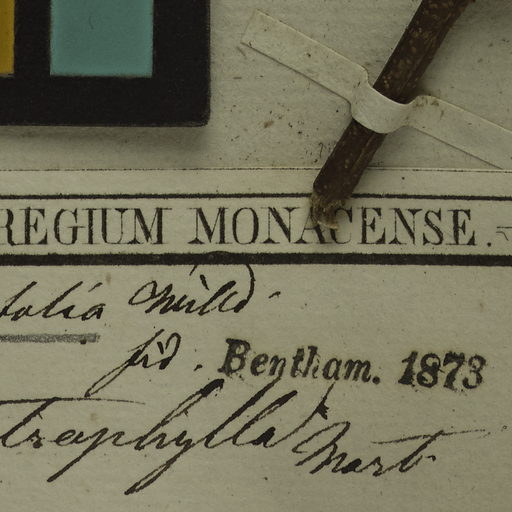 REGIUM MONACENSE.
folia Willd.
fid. Bentham. 1873
traphylla Mart